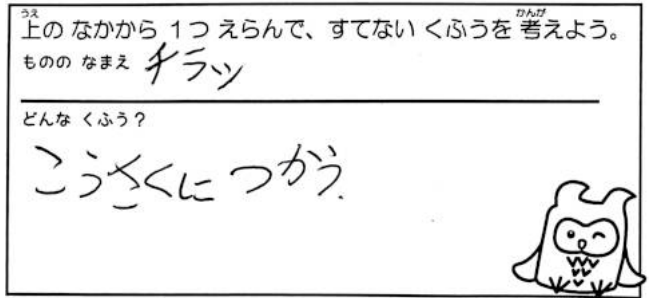 上の なかから 1つ えらんで、すてない くふうを 考えよう。
ものの なまえ チラッ
どんな くふう?
こうさくに つかう.